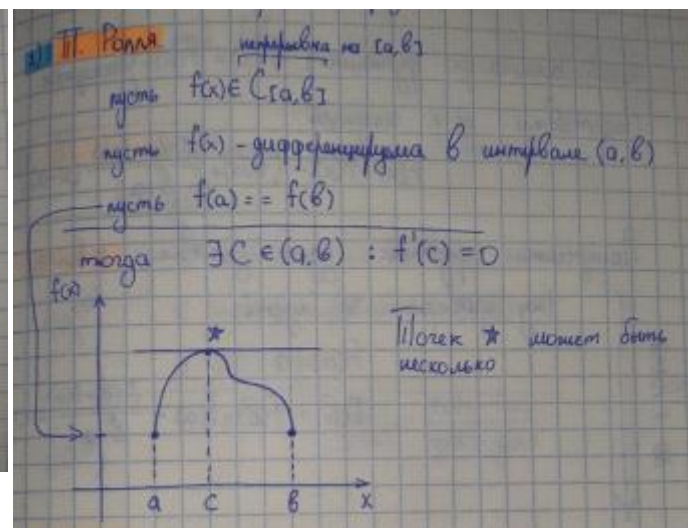 2) П. Ролля
непрерывна на [a,b]
пусть f(x) ∈ C[a,b]
пусть f(x) - дифференцируема в интервале (a,b)
пусть f(a) = = f(b)
тогда ∃ C ∈ (a,b) : f'(c) = 0
f(x)
Точек ★ может быть
несколько
a c b x